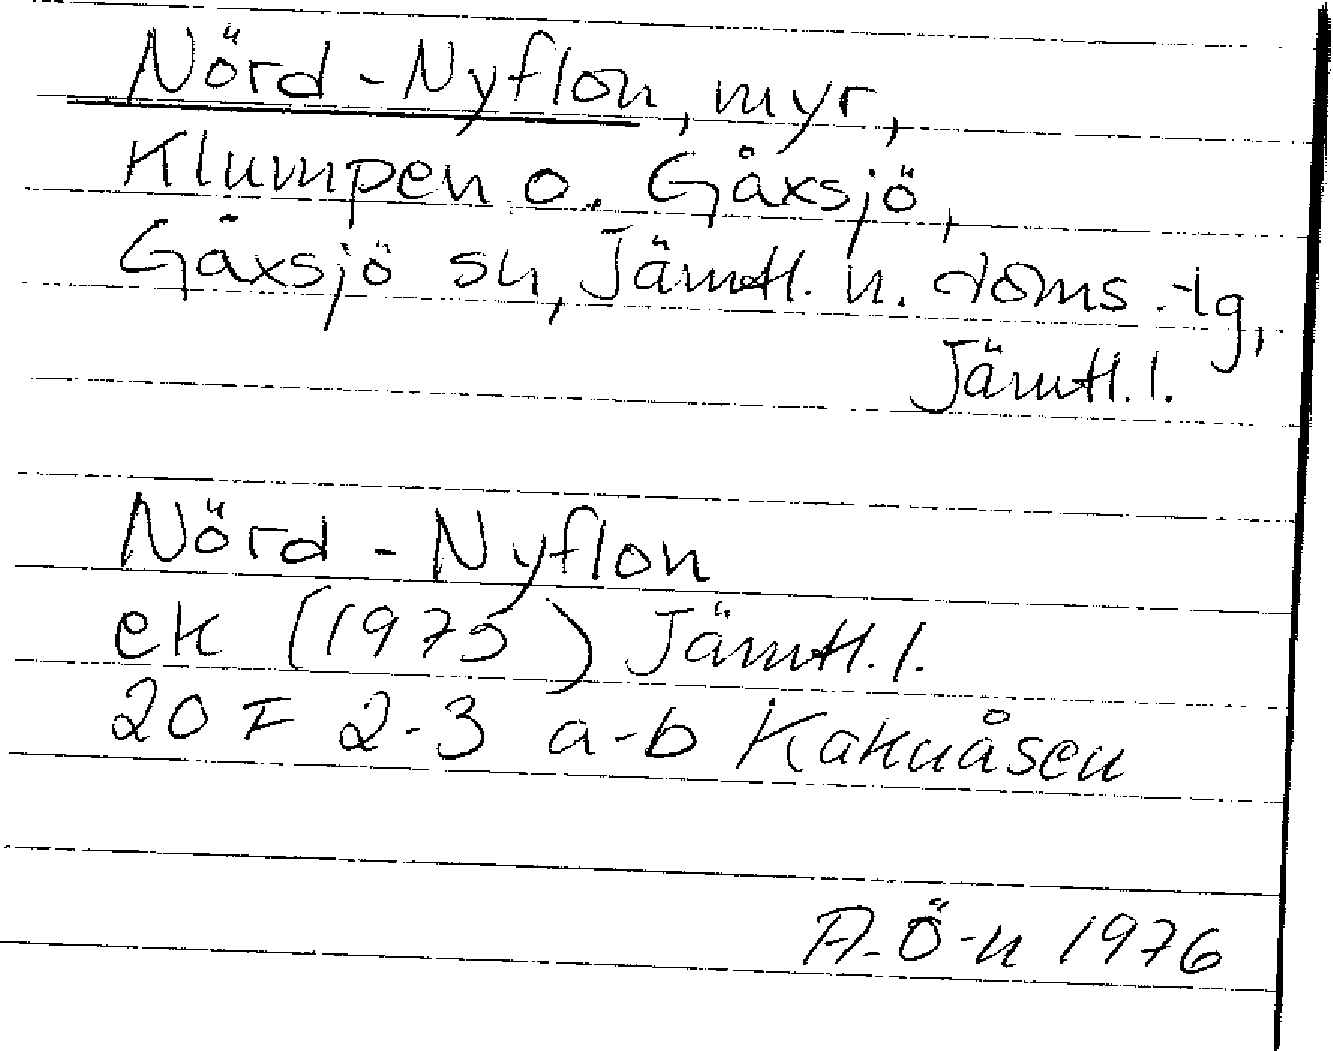 Nörd - Nyflon, myr,
Klumpen o. Gåxsjö,
Gåxsjö sn, Jämtl. n. doms. tg,
Jämtl. l.
Nörd - Nyflon
ek (1975) Jämtl. l.
20 F 2-3 a-b Kaknåsen
A. Ö-n 1976